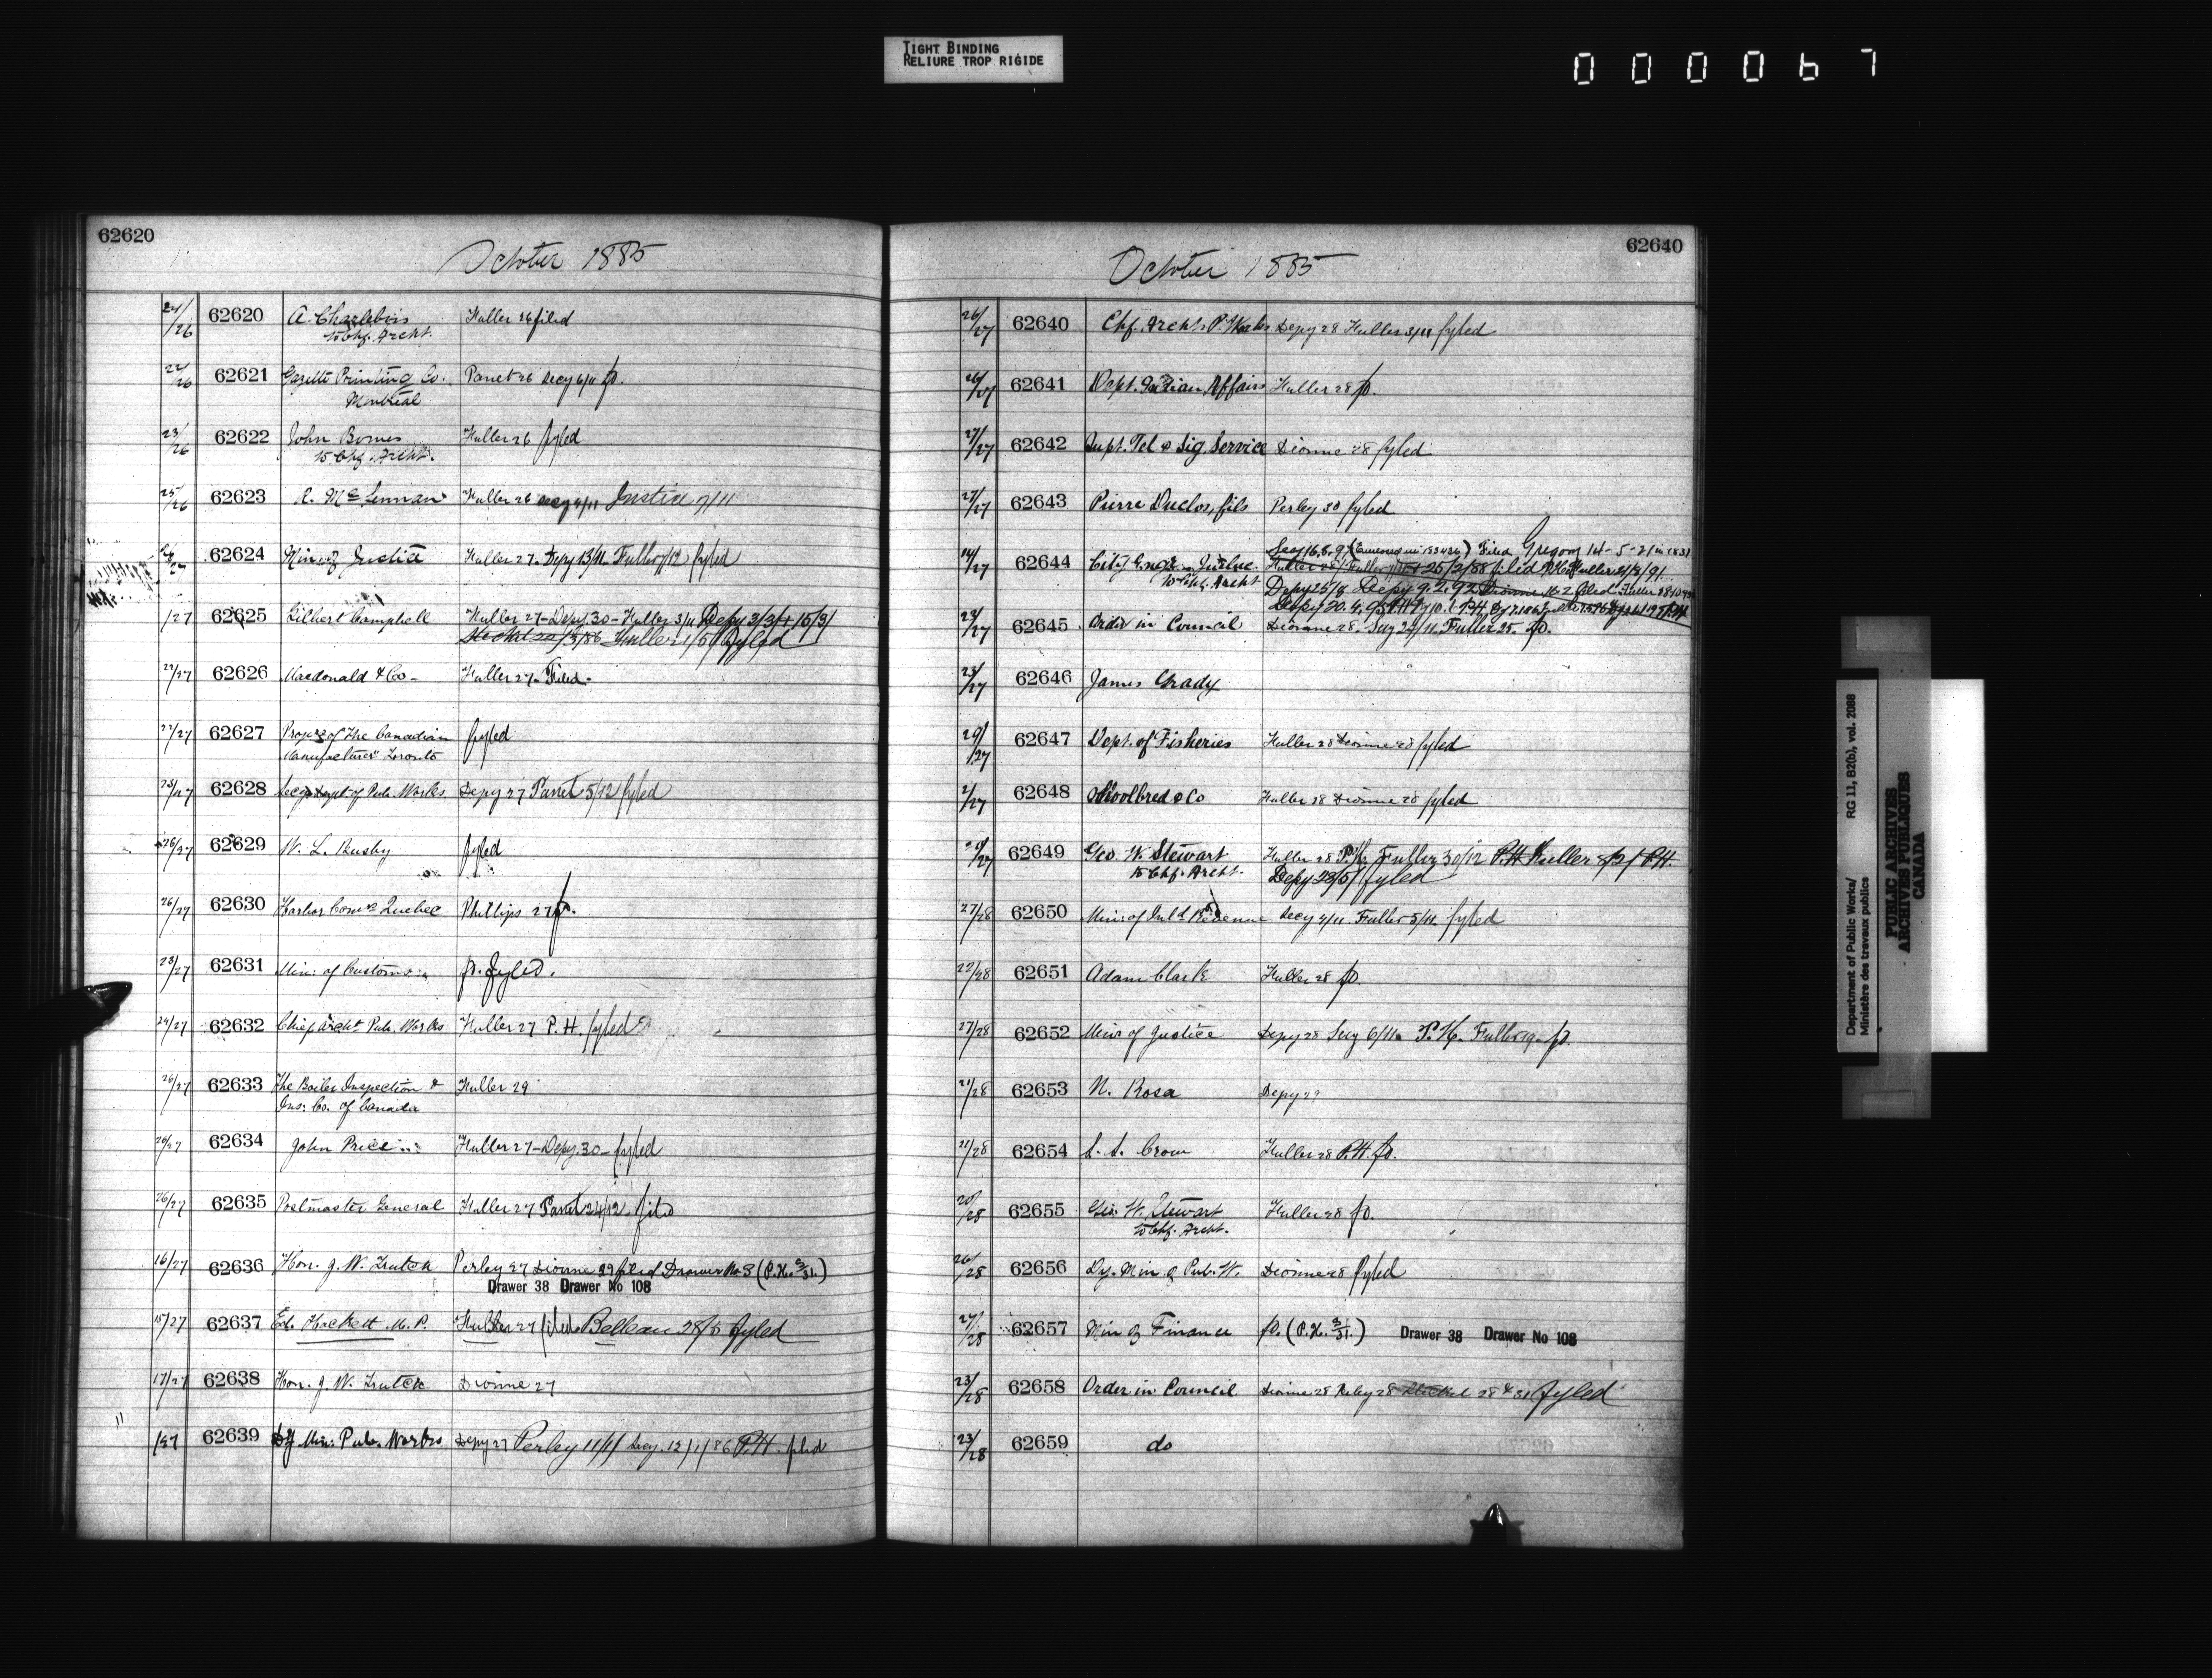 TIGHT BINDING
RELIURE TROP RIGIDE
000067
62620
October 1885
24/26 62620 A. Charlebois Fuller 26 filed
to Chf. Archt.
22/26 62621 Gazette Printing Co. Panet 26 Secy 6/11 fd.
Montreal
23/26 62622 John Bowes Fuller 26 fyled
to Chf. Archt.
25/26 62623 R. McLennan Fuller 26 Secy 4/11 Justice 7/11
62624 Min of Justice Fuller 27. Depy 13/11. Fuller 7/12 fyled
/27 62625 Gilbert Campbell Fuller 27 - Depy. 30 - Fuller 3/11 Depy 2/3/ 15/3/
/86 Fuller 1/5/ fyled
22/27 62626 Macdonald & Co - Fuller 27 - Filed -
22/27 62627 Proprs of "The Canadian fyled
Manufacturer" Toronto
23/27 62628 Secy Dept of Pub. Works. Depy 27 Panet 5/12 fyled
26/27 62629 W. L. Busby fyled
26/27 62630 Harbor Comrs Quebec Phillips 27 fd.
23/27 62631 Min: of Customs fd. fyled.
24/27 62632 Chief Archt Pub. Works Fuller 27 P.H. fyled
26/27 62633 The Boiler Inspection & Fuller 29
Ins: Co. of Canada
26/27 62634 John Price Fuller 27 - Depy. 30 - fyled
26/27 62635 Postmaster General Fuller 27 Panet 24/12 filed
16/27 62636 Hon. J. W. Trutch Perley 27 Dionne 29 filed Drawer No 3 (P.H. 3/31.)
Drawer 38 Drawer No 108
15/27 62637 Ed. Hackett M.P. Fuller 27 filed Belleau 28/5 fyled
17/27 62638 Hon. J. W. Trutch Dionne 27
/27 62639 Dy Min: Pub. Works Depy 27 Perley 11/11 Secy. 12/1/86 P.H. filed
62640
October 1885
26/27 62640 Chf. Archt. P. Works Depy 28 Fuller 3/11 fyled
26/27 62641 Dept. Indian Affairs Fuller 28 fd.
27/27 62642 Supt. Tel & Sig. Service Dionne 28 fyled
27/27 62643 Pierre Duclos, fils Perley 30 fyled
Filed Gregory 14-5-21 in 1831
14/27 62644 City Engr. Quebec 25/2/88 filed
to Chf. Archt Depy 25/8 Depy 9.2.92 Dionne 16.2 filed
Depy 20.4.95
22/27 62645 Order in Council Dionne 28. Secy 24/11. Fuller 25. fd.
23/27 62646 James Grady
29/27 62647 Dept. of Fisheries Fuller 28 Dionne 28 fyled
2/27 62648 Shoolbred & Co Fuller 28 Dionne 28 fyled
62649 Geo. W. Stewart Fuller 28 P.H. Fuller 30/12 P.H. Fuller 8/2/ P.H.
to Chf. Archt. Depy 23/5/ fyled
27/28 62650 Min: of Inld Revenue Secy 4/11 Fuller 5/11. fyled
22/28 62651 Adam Clark Fuller 28 fd.
27/28 62652 Minr of Justice Depy 28 Secy 6/11 P.H. Fuller 19 - fd.
21/28 62653 N. Rosa Depy 29
21/28 62654 S. S. Crow Fuller 28 P.H. fd.
20/28 62655 Geo. W. Stewart Fuller 28 fd.
to Chf. Archt.
26/28 62656 Dy. Min. of Pub. W. Dionne 28 fyled
27/28 62657 Min of Finance fd. (P.H. 3/31.) Drawer 38 Drawer No 108
23/28 62658 Order in Council Dionne 28 Perley 28 fyled
23/28 62659 do
Department of Public Works/ RG 11, B2(b), vol. 2088
Ministère des travaux publics
PUBLIC ARCHIVES
ARCHIVES PUBLIQUES
CANADA